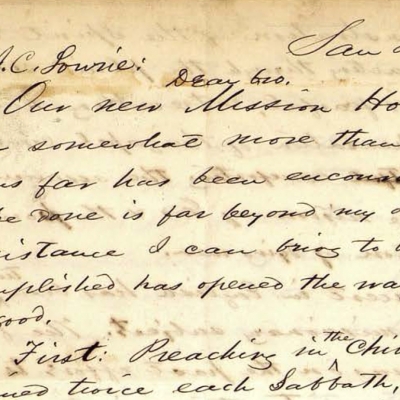 San
J.C. Lowrie:
Dear bro.
Our new Mission Ho
somewhat more than
us far has been encour
be done is far beyond my
istance I can bring to
mplished has opened the wa
good.
First: Preaching in the Chi
ined twice each Sabbath,